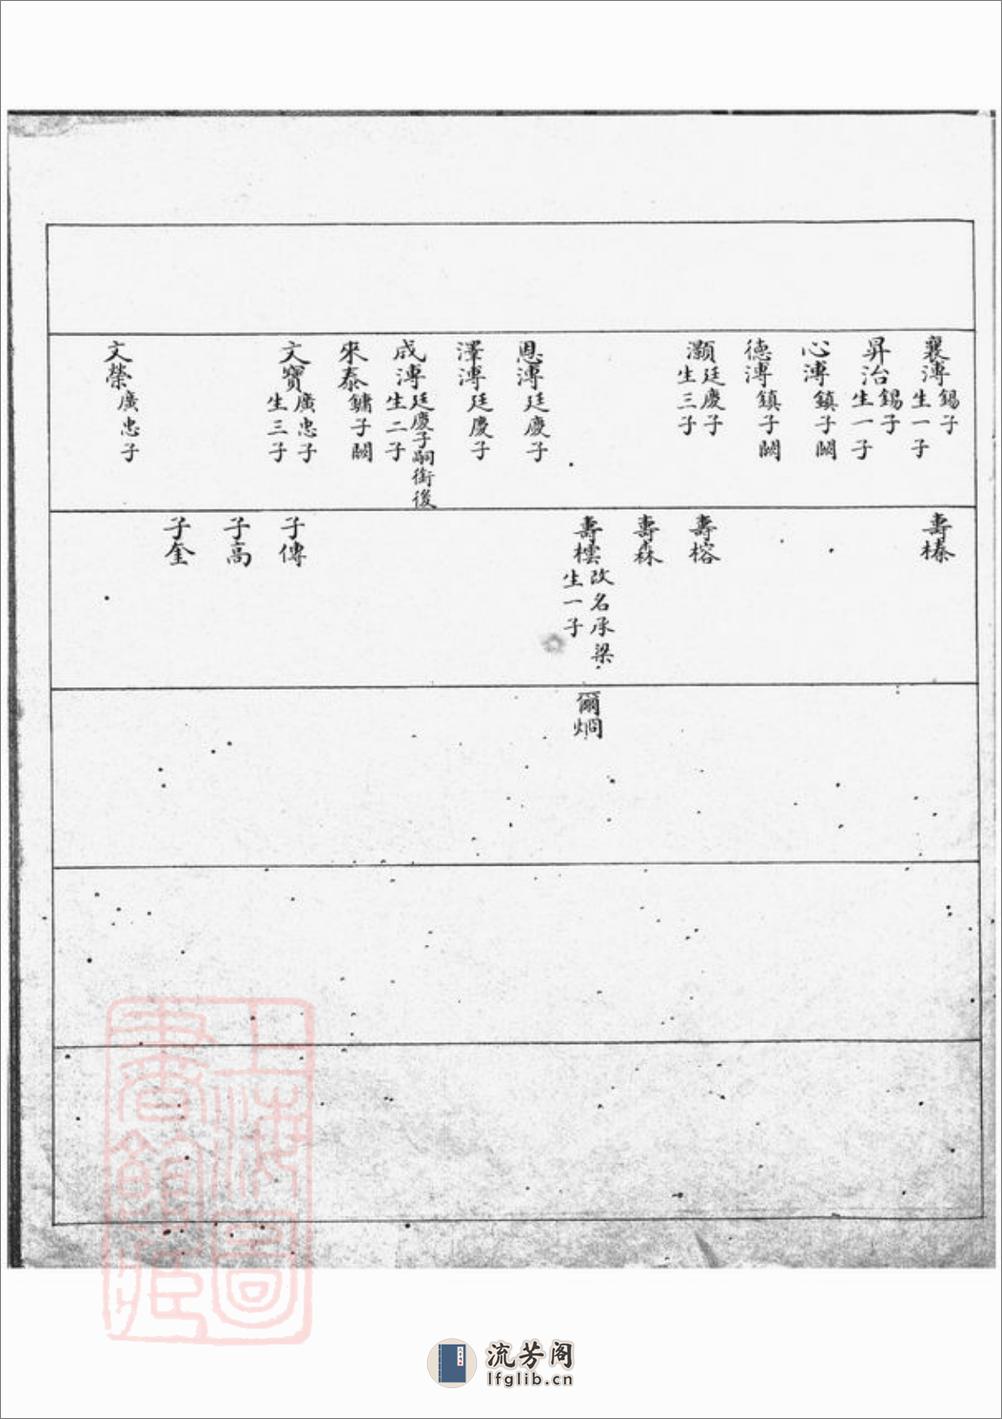 襄溥錫子生一子
昇治錫子生一子
心溥鎮子闕
德溥鎮子闕
灝廷慶子生三子
恩溥廷慶子
澤溥廷慶子
成溥廷慶子嗣銜後生二子
來泰鏞子闕
文寶廣忠子生三子
文榮廣忠子
壽榛
壽榕
壽森
壽橒改名承梁生一子
子傳
子高
子奎
爾炯
上海圖書館藏
流芳阁
lfglib.cn